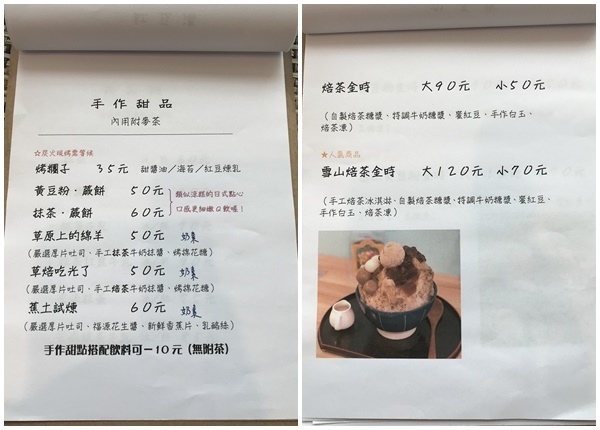 手作甜品
內用附麥茶
☆炭火現烤需等候
烤糰子 35元 甜醬油/海苔/紅豆煉乳
黃豆粉·蕨餅 50元
抹茶·蕨餅 60元
類似涼糕的日式點心
口感更細嫩Q軟喔！
草原上的綿羊 50元 奶素
(嚴選厚片吐司、手工抹茶牛奶抹醬、烤棉花糖)
草焙吃光了 50元 奶素
(嚴選厚片吐司、手工焙茶牛奶抹醬、烤棉花糖)
蕉土試煉 60元 奶素
(嚴選厚片吐司、福源花生醬、新鮮香蕉片、乳酪絲)
手作甜點搭配飲料可-10元 (無附茶)
焙茶金時 大90元 小50元
(自製焙茶糖漿、特調牛奶糖漿、蜜紅豆、手作白玉、
焙茶凍)
★人氣商品
雪山焙茶金時 大120元 小70元
(手工焙茶冰淇淋、自製焙茶糖漿、特調牛奶糖漿、蜜紅豆、
手作白玉、焙茶凍)